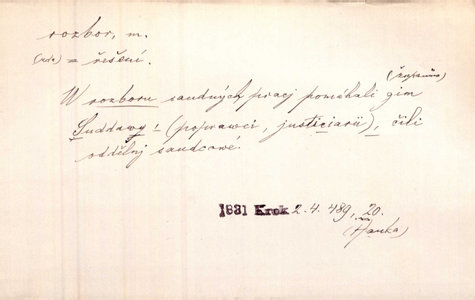 rozbor, m.
(rada) = řešení.
(župane)
W rozboru saudných pracj pomáhali gim
Suddawy! (poprawci, justiciarii), čili
oddělnj saudcowé.
1831 Krok 2. 4. 489, 20.
(Hanka)